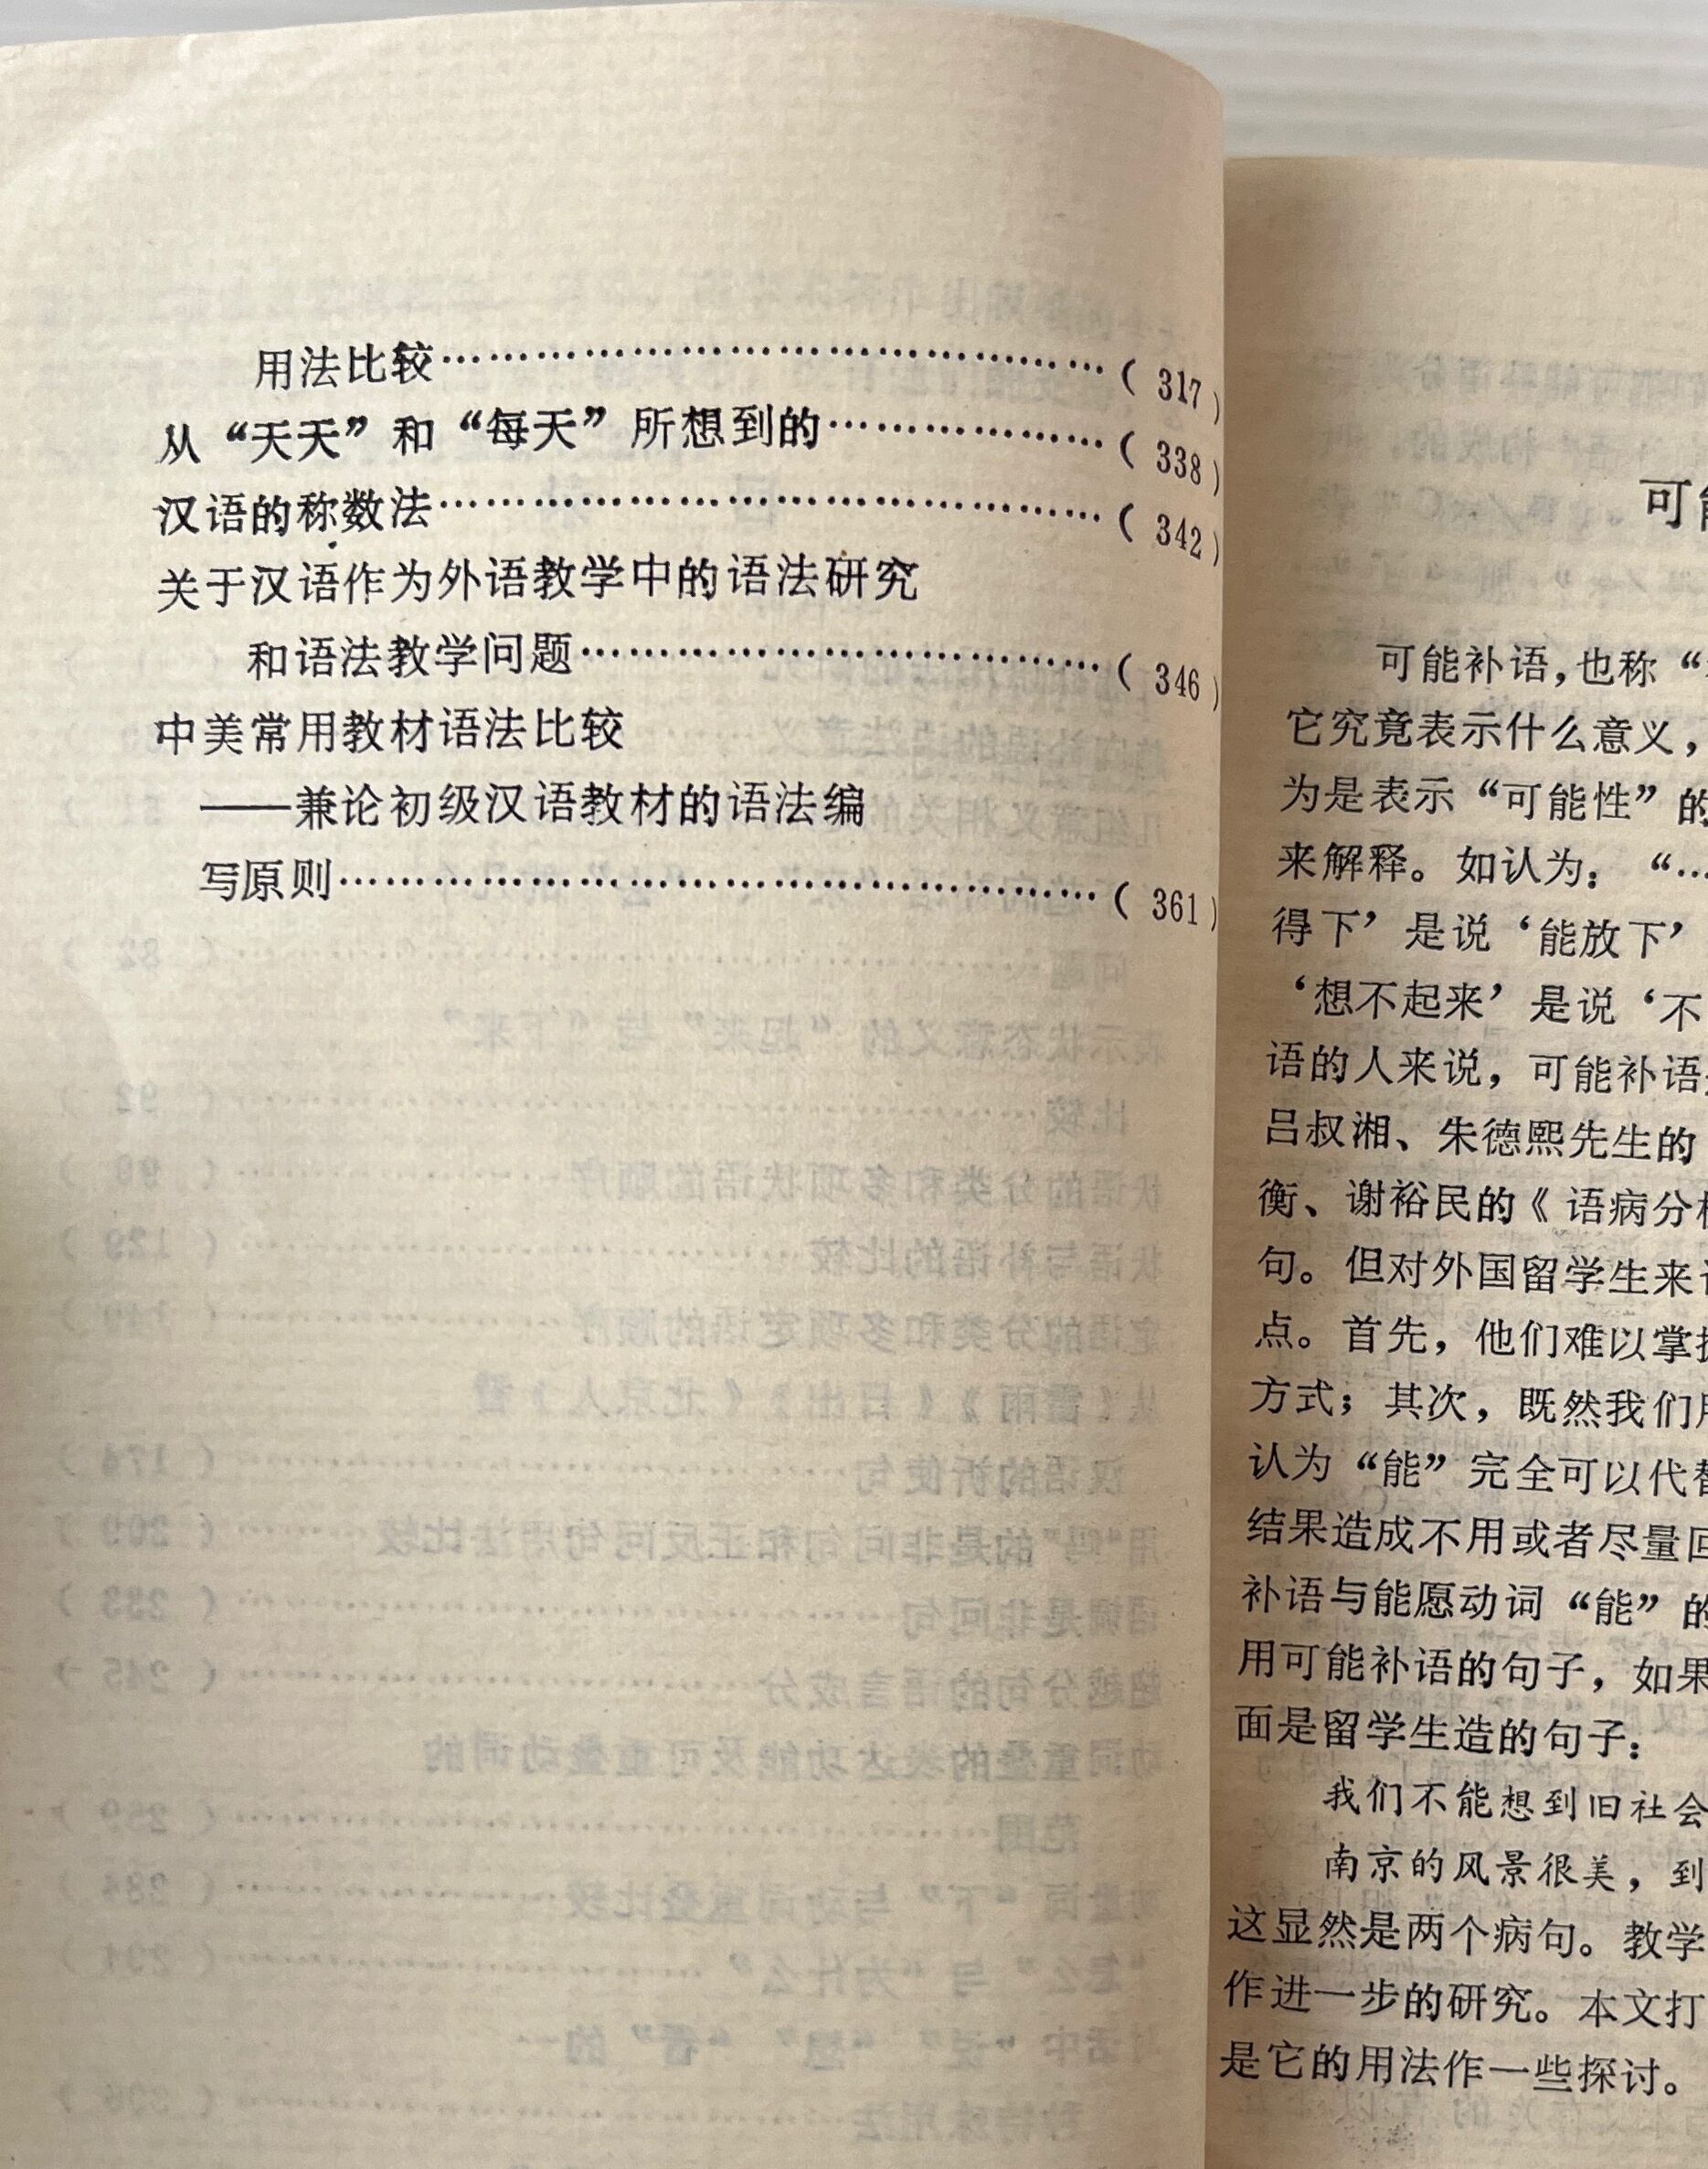 用法比较……………………………………………………( 317 )
从“天天”和“每天”所想到的……………………( 338 )
汉语的称数法……………………………………………………( 342 )
关于汉语作为外语教学中的语法研究
和语法教学问题…………………………………………( 346 )
中美常用教材语法比较
——兼论初级汉语教材的语法编
写原则……………………………………………………………( 361 )
可
可能补语，也称“
它究竟表示什么意义，
为是表示“可能性”的
来解释。如认为：“…
得下’是说‘能放下’
‘想不起来’是说‘不
语的人来说，可能补语
吕叔湘、朱德熙先生的
衡、谢裕民的《语病分
句。但对外国留学生来
点。首先，他们难以掌
方式；其次，既然我们
认为“能”完全可以代
结果造成不用或者尽量回
补语与能愿动词“能”的
用可能补语的句子，如果
面是留学生造的句子：
我们不能想到旧社会
南京的风景很美，到
这显然是两个病句。教学
作进一步的研究。本文打
是它的用法作一些探讨。